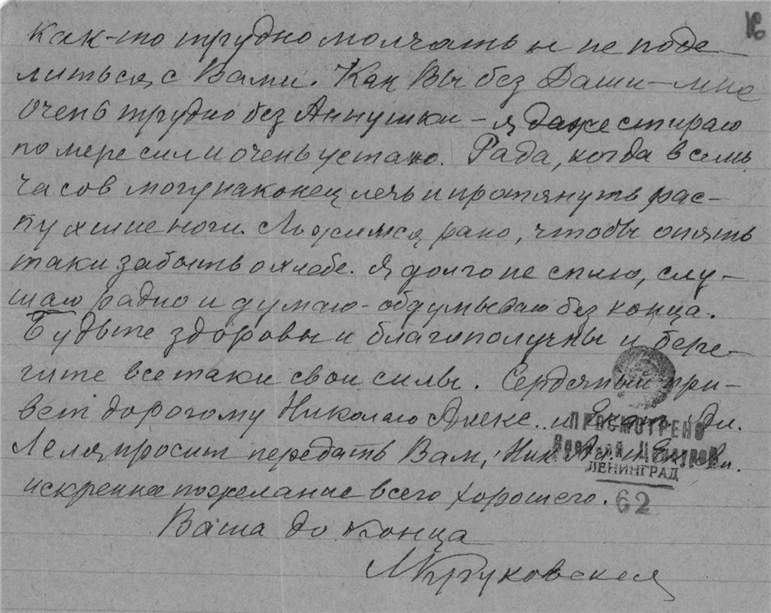 16
Как-то трудно молчать и не поде-
литься с Вами. Как Вы без Даши – мне
очень трудно без Аннушки – я даже стираю
по мере сил и очень устаю. Рада, когда в семь
часов могу наконец лечь и протянуть рас-
пухшие ноги. Ложимся рано, чтобы опять
таки забыть о хлебе. Я долго не сплю, слу-
шаю радио и думаю – обдумываю без конца.
Будьте здоровы и благополучны и бере-
гите все таки свои силы. Сердечный при-
вет дорогому Николаю Алекс. и
Леля просит передать Вам, Ник. Ал. и
искреннее пожелание всего хорошего.
Ваша до конца
МКруковская
ПРОСМОТРЕНО
Военной Цензурой
ЛЕНИНГРАД
62